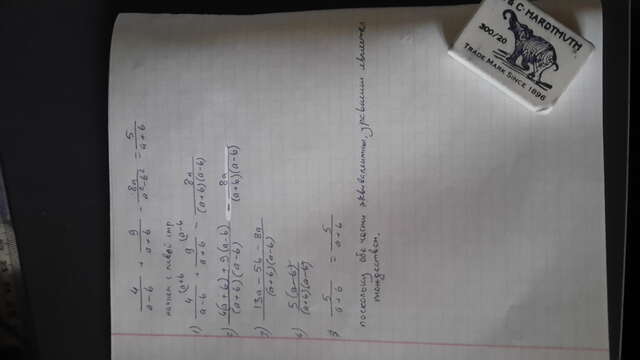 4/(a-b) + 9/(a+b) - 8a/(a²-b²) = 5/(a+b)
начнем с левой стр
1) 4/(a-b) (a+b + 9/(a+b) (a-b - 8a/((a+b)(a-b))
2) (4(a+b) + 9(a-b))/((a+b)(a-b)) - 8a/((a+b)(a-b))
3) (13a - 5b - 8a)/((a+b)(a-b))
4) 5(a-b)/((a+b)(a-b))
5) 5/(a+b) = 5/(a+b)
поскольку обе части эквивалентны, уравнение является
тождеством.
HARDTMUTH
TRADE MARK SINCE 1896
300/20